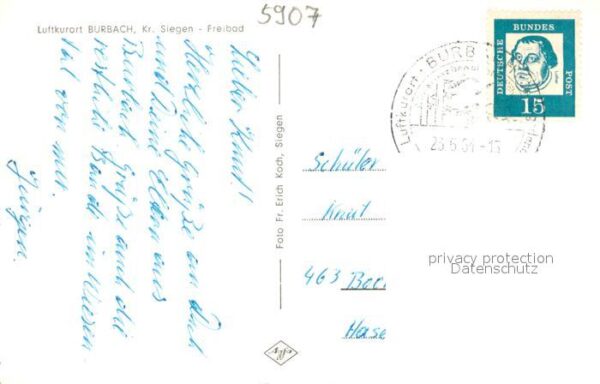 5907
Luftkurort BURBACH, Kr. Siegen - Freibad
Lieber Knut!
Herzliche Grüße an Dich
und Deine Eltern aus
Burbach. Grüße auch die
restliche Bande im Wiesen
tal von mir.
Jürgen.
Foto Fr. Erich Koch, Siegen
agfa
DEUTSCHE BUNDES POST
15
Luftkurort · BURB
Schüler
Knut
463 Boc
Hase
privacy protection
Datenschutz